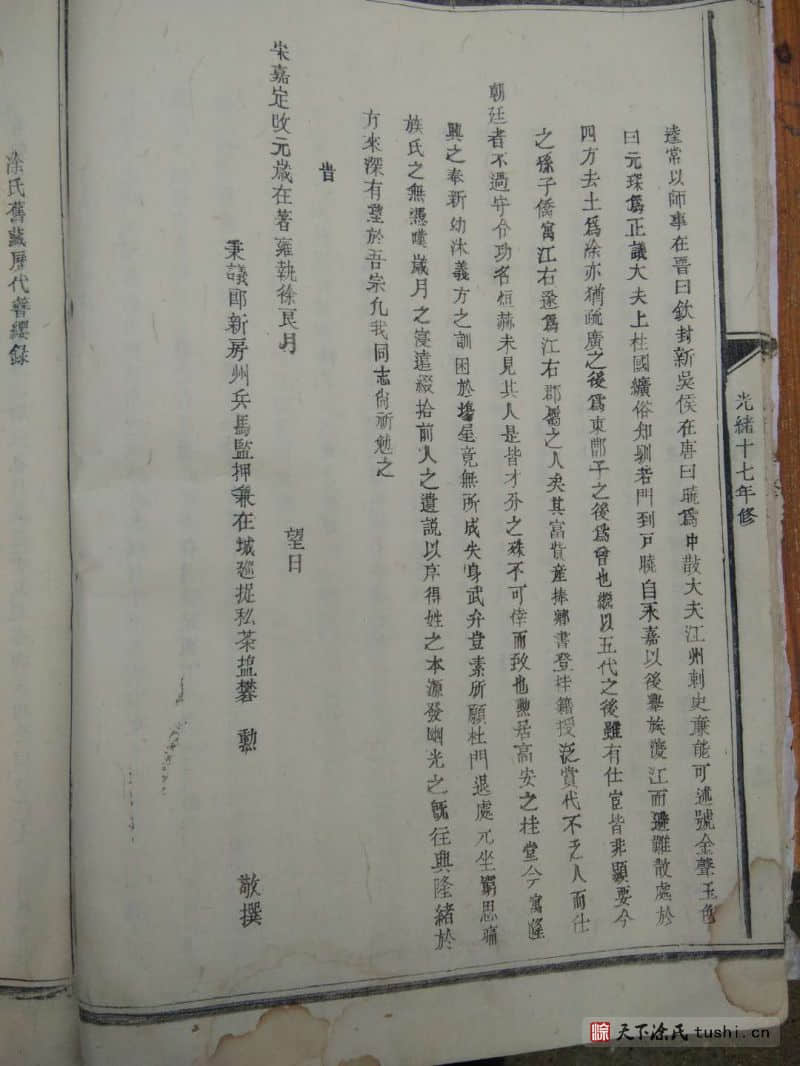 光緒十七年修
逵常以師事在晋曰欽封新吳侯在唐曰巯為中散大夫江州刺史廉能可述號金聲玉色
曰元琛為正議大夫上柱國纊俗知馴若門到戸曉自永嘉以後舉族渡江而避難散處於
四方去土為涂亦猶疏廣之後為東鄣子之後為曾也繼以五代之後雖有仕宦皆非顯要今
之孫子僑寓江右遂為江右郡之人矣其富貲産捧鄉書登桂籍授泛賞代不乏人而仕
朝廷者不過守令功名烜赫未見其人是皆才分之殊不可倖而致也勲居高安之桂堂今寓隆
興之奉新幼沐義方之訓困於塲屋竟無所成失身武弁豈素所願杜門退處兀坐窮思痛
族氏之無憑嘆歲月之寖遠綴拾前人之遺説以序得姓之本源發幽光之旣往興隆緒於
方來深有望於吾宗凢我同志尙祈勉之
旹
宋嘉定改元歲在著雍執徐良月
望日
秉議郎新房州兵馬監押兼在城廵捉私茶塩礬
勲
敬撰
涂氏舊藏歷代簪纓錄
涂
天下涂氏 tushi.cn